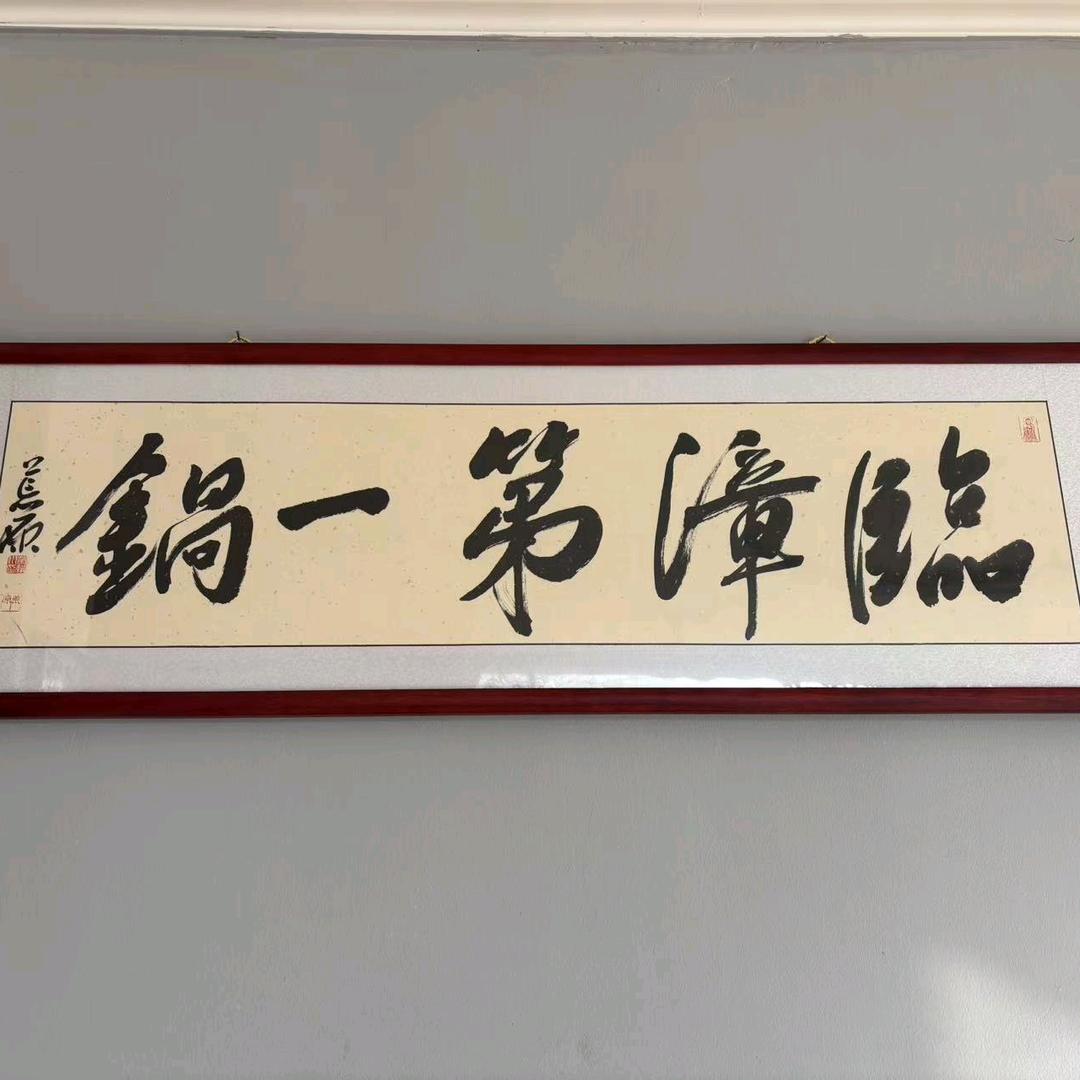 臨漳第一鍋